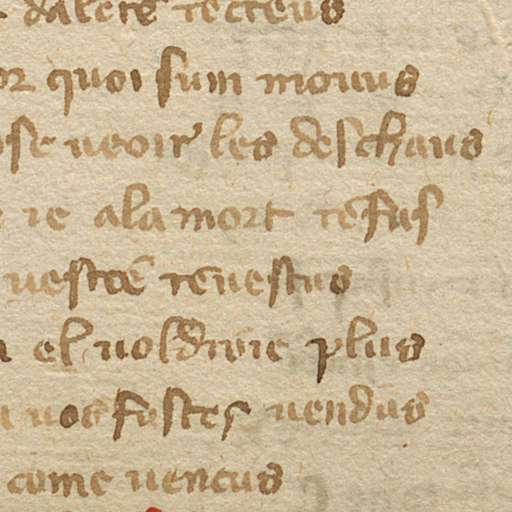 dalere recreus
or quoi sum mouus
ose ueoir les deschaus
e ie ala mort refus
uestre reuestus
el uoldroie plus
uos fustes uendus
come uencus